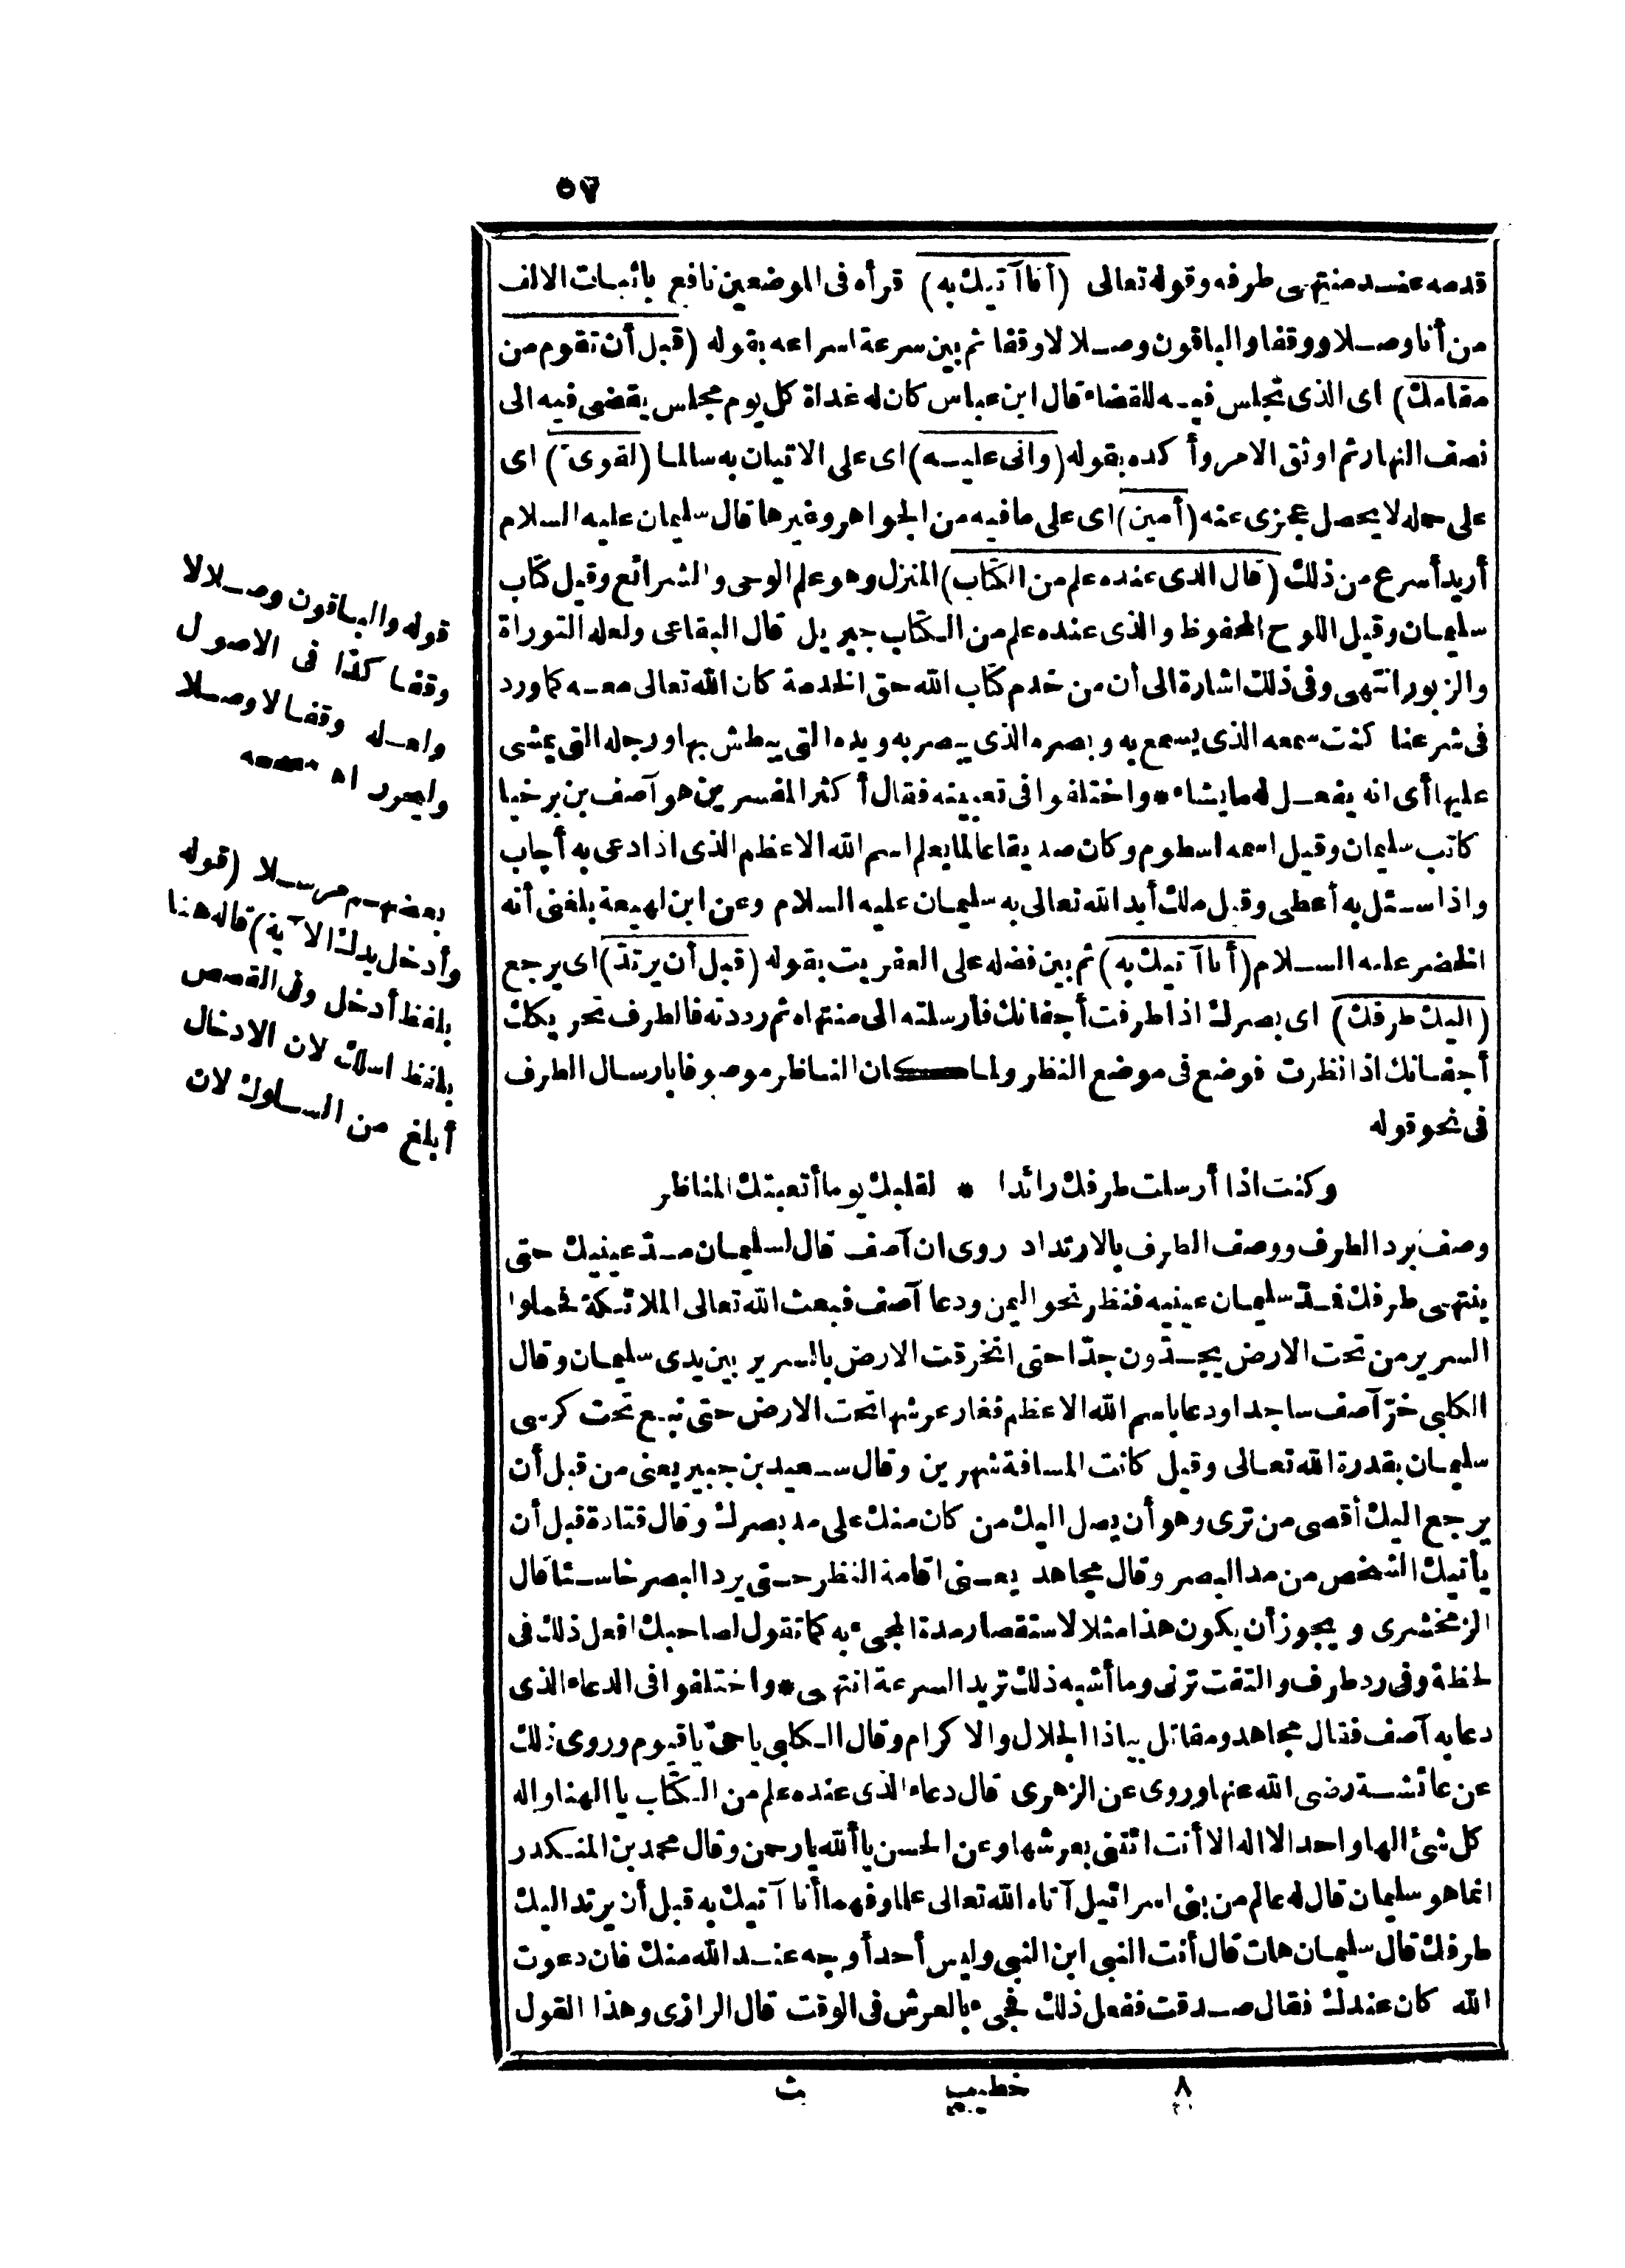 ٥٧
قدمه عند منتهى طرفه وقوله تعالى (أنا آتيك به) قرأه فى الموضعين نافع باثبات الالف
من أنا وصلا ووقفا والباقون وصلا لا وقفا ثم بين سرعة اسراعه بقوله (قبل أن تقوم من
مقامك) اى الذى تجلس فيه للقضاء قال ابن عباس كان له غداة كل يوم مجلس يقضى فيه الى
نصف النهار ثم اوثق الامر وأكده بقوله (وانى عليه) اى على الاتيان به سالما (لقوىّ) اى
على حمله لا يحصل عجزى عنه (أمين) اى على ما فيه من الجواهر وغيرها قال سليمان عليه السلام
أريد أسرع من ذلك (قال الذى عنده علم من الكتاب) المنزل وهو علم الوحى والشرائع وقيل كتاب
سليمان وقيل اللوح المحفوظ والذى عنده علم من الكتاب جبريل قال البقاعى ولعله التوراة
والزبور انتهى وفى ذلك اشارة الى أن من خدم كتاب الله حق الخدمة كان الله تعالى معه كما ورد
فى شرعنا كنت سمعه الذى يسمع به وبصره الذى يبصر به ويده التى يبطش بها ورجله التى يمشى
عليها أى انه يفعل له ما يشاء * واختلفوا فى تعيينه فقال أكثر المفسرين هو آصف بن برخيا
كاتب سليمان وقيل اسمه اسطوم وكان صديقا عالما يعلم اسم الله الاعظم الذى اذا دعى به أجاب
واذا سئل به أعطى وقيل ملك أيد الله تعالى به سليمان عليه السلام وعن ابن لهيعة بلغنى أنه
الخضر عليه السلام (أنا آتيك به) ثم بين فضله على العفريت بقوله (قبل أن يرتدّ) اى يرجع
(اليك طرفك) اى بصرك اذا طرفت أجفانك فأرسلته الى منتهاه ثم رددته فالطرف تحريكك
أجفانك اذا نظرت فوضع فى موضع النظر ولما كان الناظر موصوفا بارسال الطرف
فى نحو قوله
وكنت اذا أرسلت طرفك رائدا * لقلبك يوما أتعبتك المناظر
وصف برد الطرف ووصف الطرف بالارتداد روى ان آصف قال لسليمان مدّ عينيك حتى
ينتهى طرفك فمدّ سليمان عينيه فنظر نحو اليمن ودعا آصف فبعث الله تعالى الملائكة فحملوا
السرير من تحت الارض يجدّون جدّا حتى انخرقت الارض بالسرير بين يدى سليمان وقال
الكلبى خرّ آصف ساجدا ودعا باسم الله الاعظم فغار عرشها تحت الارض حتى نبع تحت كرسى
سليمان بقدرة الله تعالى وقيل كانت المسافة شهرين وقال سعيد بن جبير يعنى من قبل أن
يرجع اليك أقصى من ترى وهو أن يصل اليك من كان منك على مد بصرك وقال قتادة قبل أن
يأتيك الشخص من مد البصر وقال مجاهد يعنى اقامة النظر حتى يرد البصر خاسئا قال
الزمخشرى ويجوز أن يكون هذا مثلا لاستقصار مدة المجىء به كما تقول لصاحبك افعل ذلك فى
لحظة وفى رد طرف والتفت ترنى وما أشبه ذلك تريد السرعة انتهى * واختلفوا فى الدعاء الذى
دعا به آصف فقال مجاهد ومقاتل بياذا الجلال والاكرام وقال الكلبى ياحىّ ياقيوم وروى ذلك
عن عائشة رضى الله عنها وروى عن الزهرى قال دعاء الذى عنده علم من الكتاب يا الهنا واله
كل شئ الها واحدا لا اله الا أنت ائتنى بعرشها وعن الحسن يا ألله يا رحمن وقال محمد بن المنكدر
انما هو سليمان قال له عالم من بنى اسرائيل آتاه الله تعالى علما وفهما أنا آتيك به قبل أن يرتد اليك
طرفك قال سليمان هات قال أنت النبى ابن النبى وليس أحد أوجه عند الله منك فان دعوت
الله كان عندك فقال صدقت ففعل ذلك فجىء بالعرش فى الوقت قال الرازى وهذا القول
قوله والباقون وصلا لا
وقفا كذا فى الاصول
ولعله وقفا لا وصلا
وليحرر اه مصححه
بعضهم مرسلا (قوله
وأدخل يدك الآية) قاله هنا
بلفظ أدخل وفى القصص
بلفظ اسلك لان الادخال
أبلغ من السلوك لان
٨ خطيب ث